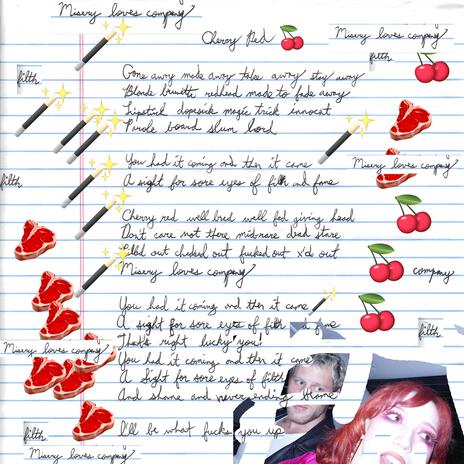 Misery loves company
Cherry Red
Misery loves company
filth
filth
Gone away made away take away stay away
Blonde brunette redhead made to fade away
Lipstick dopesick magic trick innocent
Parole board slum lord
You had it coming and then it came
Misery loves company
filth
A sight for sore eyes of filth and fame
Cherry red well bred well fed giving head
Don't care not there mid-rare dead stare
out chaded out fucked out x'd out
Misery loves company
company
You had it coming and then it came
A sight for sore eyes of filth fame
filth
That's right lucky you!
Misery loves company
You had it coming and then it came
A sight for sore eyes of filth
And shame and never ending blame
filth
I'll be what fucks you up
Misery loves company